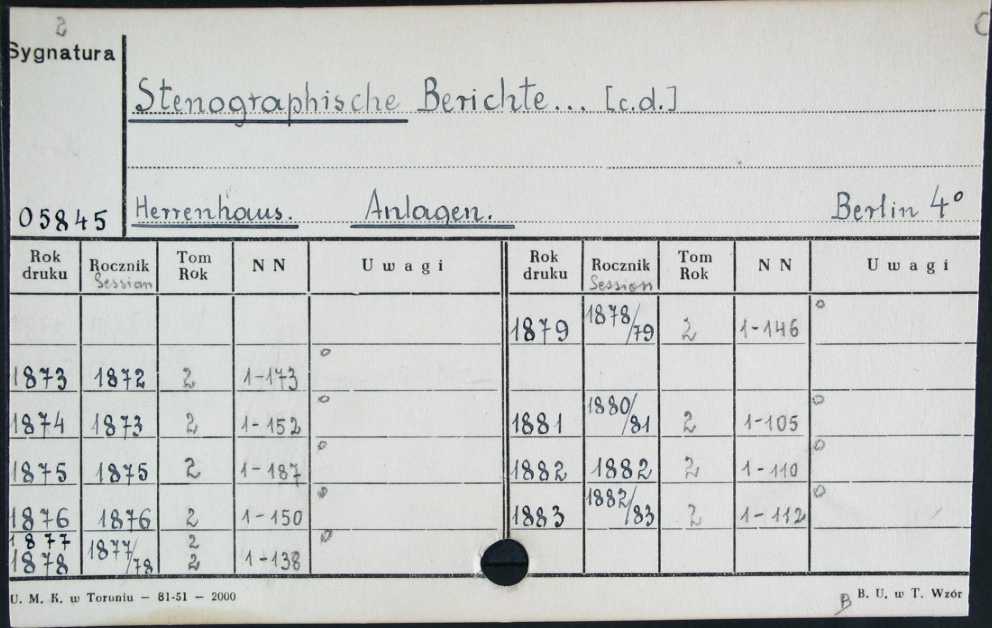 2
Sygnatura
Stenographische Berichte... [c.d.]
05845 Herrenhaus. Anlagen. Berlin 4°
Rok druku Rocznik Session Tom Rok NN Uwagi Rok druku Rocznik Session Tom Rok NN Uwagi
1879 1878/79 2 1-146 o
1873 1872 2 1-173 o
1874 1873 2 1-152 o 1881 1880/81 2 1-105 o
1875 1875 2 1-187 o 1882 1882 2 1-110 o
1876 1876 2 1-150 o 1883 1882/83 2 1-112 o
1877 2
1878 1877/78 2 1-138 o
U. M. K. w Toruniu — 81-51 — 2000 B B. U. w T. Wzór